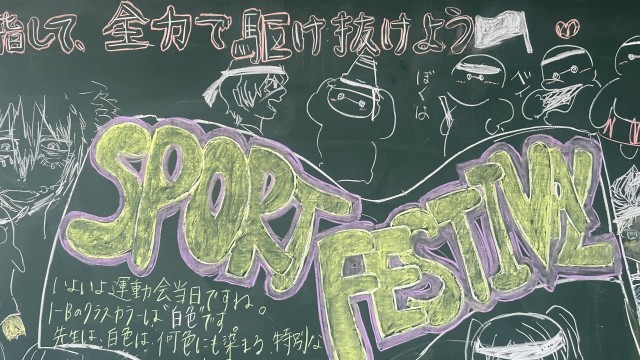 指して、全力で駆け抜けよう
ぼくは
SPORT
FESTIVAL
いよいよ運動会当日ですね。
1-Bのクラスカラーは"白色"です
先生は、白色は、何色にも染まる、特別な